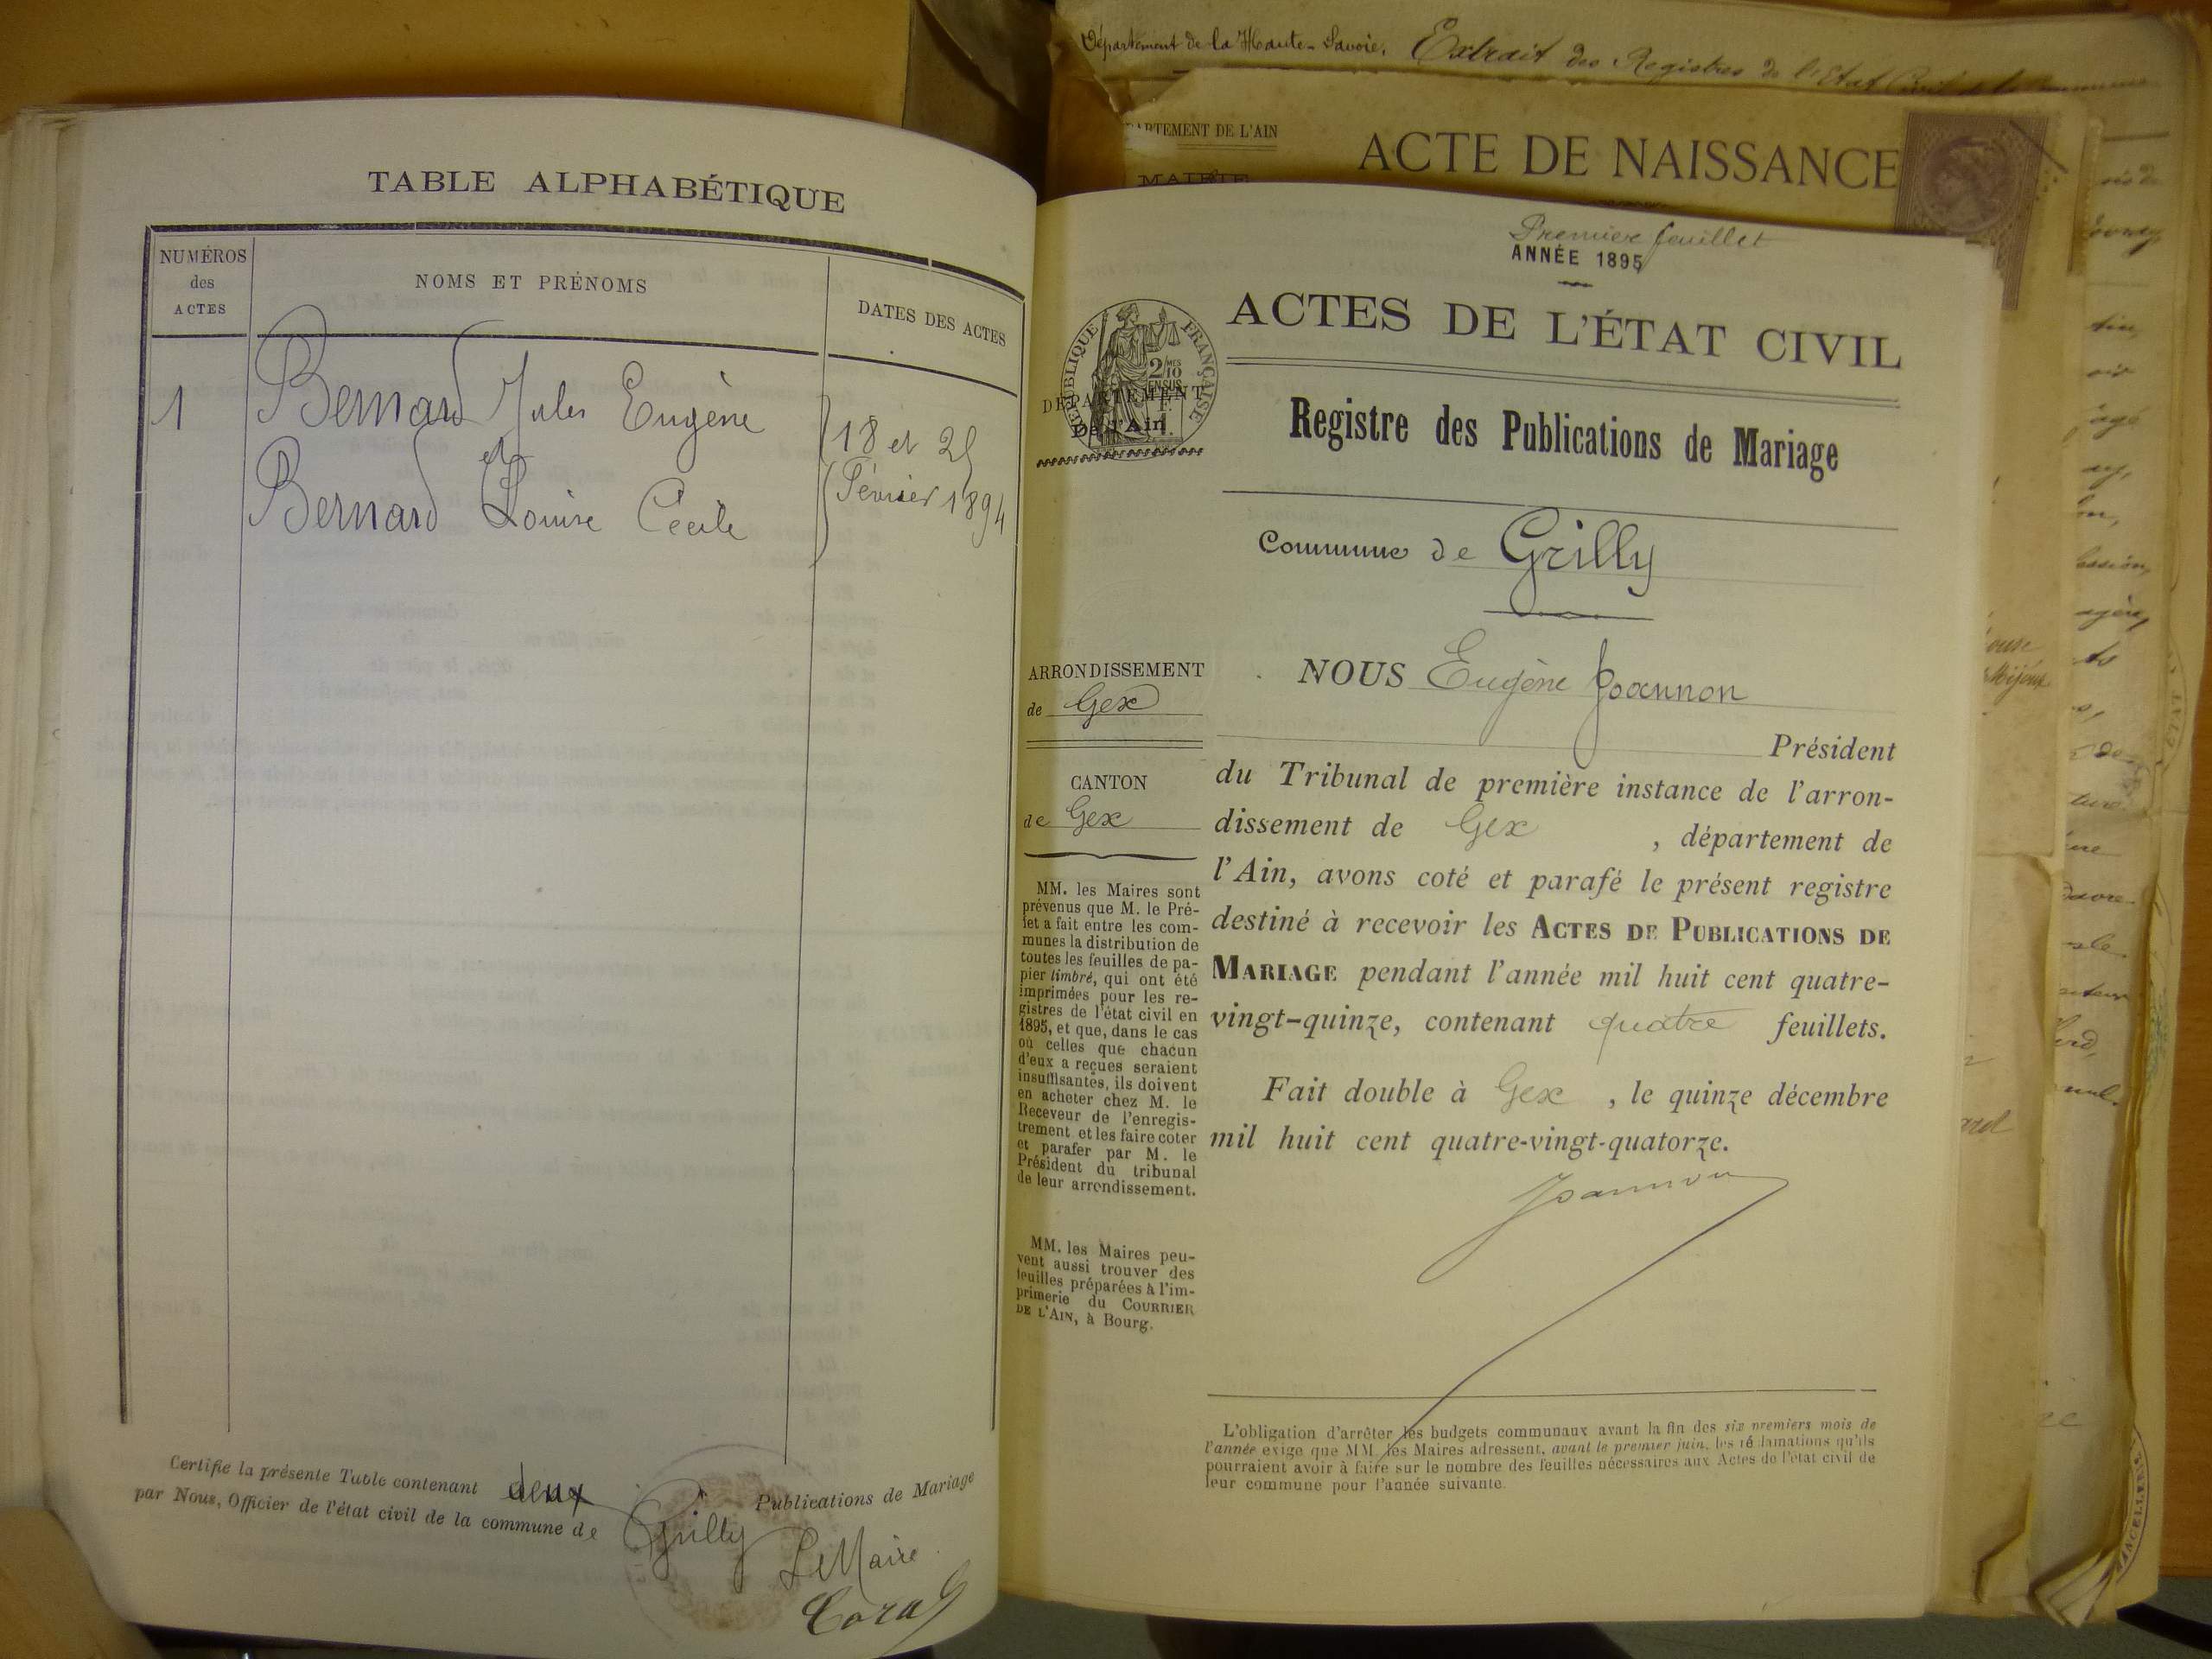 TABLE ALPHABÉTIQUE
NUMÉROS
des
ACTES
NOMS ET PRÉNOMS
DATES DES ACTES
1
Bernard Jules Eugène
et
Bernard Louise Cécile
18 et 25
Février 1894
Certifie la présente Table contenant deux Publications de Mariage
par Nous, Officier de l'état civil de la commune de Grilly
Le Maire
Département de la Haute-Savoie. Extrait des Registres de l'Etat Civil de la
DE L'AIN
MAIRIE
ACTE DE NAISSANCE
Premier feuillet
ANNÉE 1895
RÉPUBLIQUE FRANÇAISE
2/10
MES
EN SUS
DÉPARTEMENT
De l'Ain
ACTES DE L'ÉTAT CIVIL
Registre des Publications de Mariage
Commune de Grilly
ARRONDISSEMENT
de Gex
CANTON
de Gex
MM. les Maires sont
prévenus que M. le Pré-
fet a fait entre les com-
munes la distribution de
toutes les feuilles de pa-
pier timbré, qui ont été
imprimées pour les re-
gistres de l'état civil en
1895, et que, dans le cas
où celles que chacun
d'eux a reçues seraient
insuffisantes, ils doivent
en acheter chez M. le
Receveur de l'enregis-
trement et les faire coter
et parafer par M. le
Président du tribunal
de leur arrondissement.
MM. les Maires peu-
vent aussi trouver des
feuilles préparées à l'im-
primerie du COURRIER
DE L'AIN, à Bourg.
NOUS Eugène Joannon
Président
du Tribunal de première instance de l'arron-
dissement de Gex , département de
l'Ain, avons coté et parafé le présent registre
destiné à recevoir les ACTES DE PUBLICATIONS DE
MARIAGE pendant l'année mil huit cent quatre-
vingt-quinze, contenant quatre feuillets.
Fait double à Gex , le quinze décembre
mil huit cent quatre-vingt-quatorze.
Joannon
L'obligation d'arrêter les budgets communaux avant la fin des six premiers mois de
l'année exige que MM. les Maires adressent, avant le premier juin, les réclamations qu'ils
pourraient avoir à faire sur le nombre des feuilles nécessaires aux Actes de l'état civil de
leur commune pour l'année suivante.